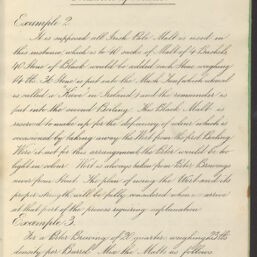 Example 2.
It is supposed all Irish Pale Malt is used in
this instance, which is to 40 sacks of Malt of 4 Bushels
40 Stone of Black would be added each Stone weighing
14 lb. If Stone is put into the Mash Tun (which vessel
is called a "Kieve" in Ireland) and the remainder is
put into the second Boiling. The Black Malt is
reserved to make up for the deficiency of colour which is
occasioned by taking away the Wort from the first Boiling
Were it not for this arrangement the Porter would be too
light in colour. Wort is always taken from Porter Brewings
never from Stout. The plan of using the Wort and its
proper strength will be fully considered when arrive
at that part of the process requiring explanation
Example 3.
For a Porter Brewing of 20 quarters weighing 23 lb
density per Barrel. Mix the Malts as follows